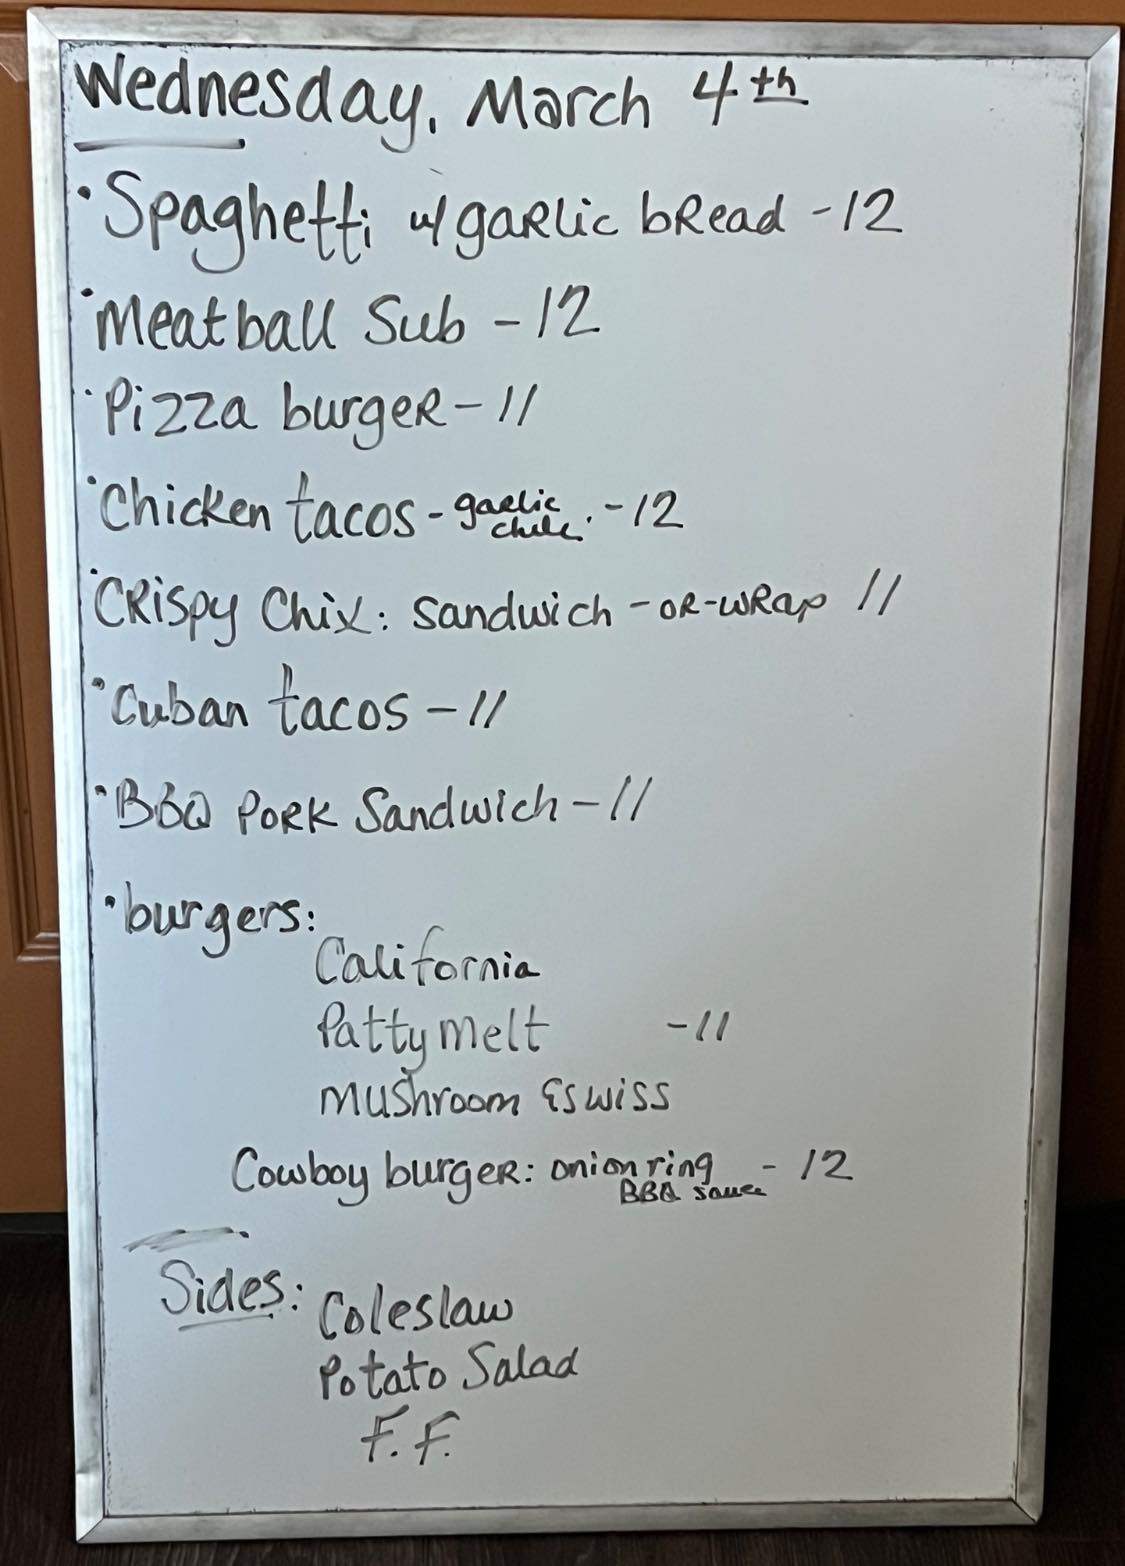 Wednesday, March 4th
• Spaghetti w/ garlic bread - 12
• Meatball Sub - 12
• Pizza burger - 11
• Chicken tacos - garlic chile. - 12
• Crispy Chix: Sandwich - or - wrap 11
• Cuban tacos - 11
• BBQ Pork Sandwich - 11
• burgers:
California
Patty melt - 11
Mushroom & Swiss
Cowboy burger: onion ring - 12
BBQ sauce
Sides: Coleslaw
Potato Salad
F.F.